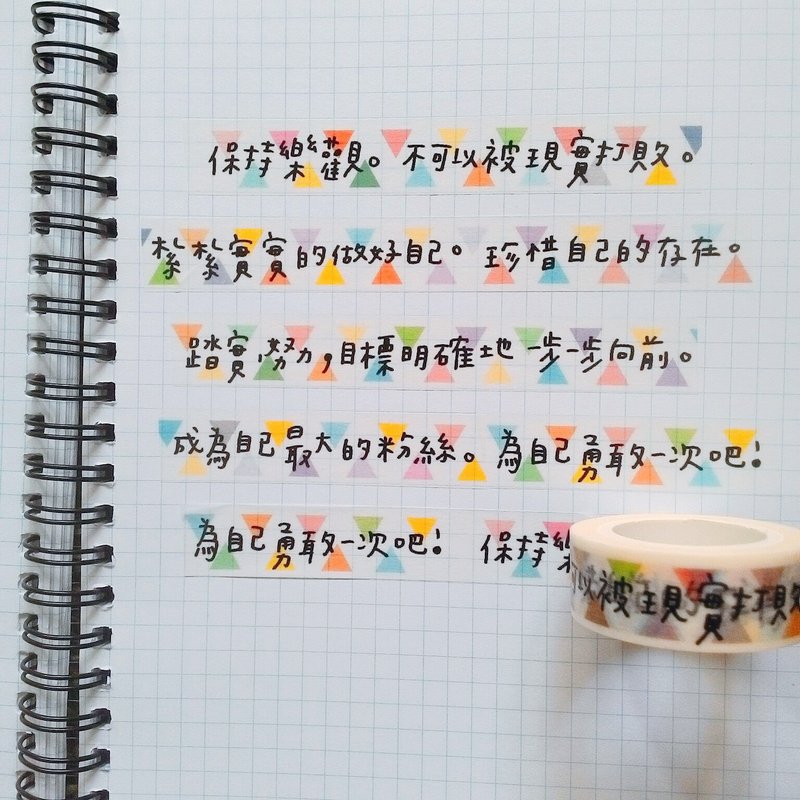 保持樂觀。不可以被現實打敗。
紮紮實實的做好自己。珍惜自己的存在。
踏實,努力,目標明確地一步一步向前。
成為自己最大的粉絲。為自己勇敢一次吧!
為自己勇敢一次吧! 保持樂
可以被現實打敗